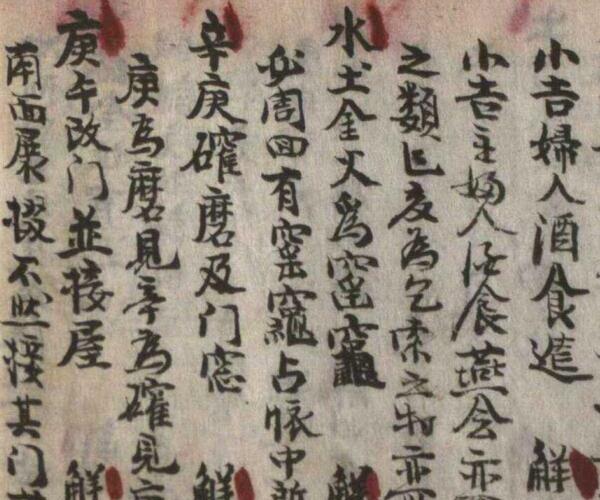 小吉婦人酒食造 解
小吉主婦人酒食燕会亦
之類已亥為乞索之物亦
水土金火為窑竈 解
必周囬有窑竈占中
辛庚碓磨及门窓 解
庚為磨見辛為碓見
庚午改门並接屋 解
南面展掇不然接其门